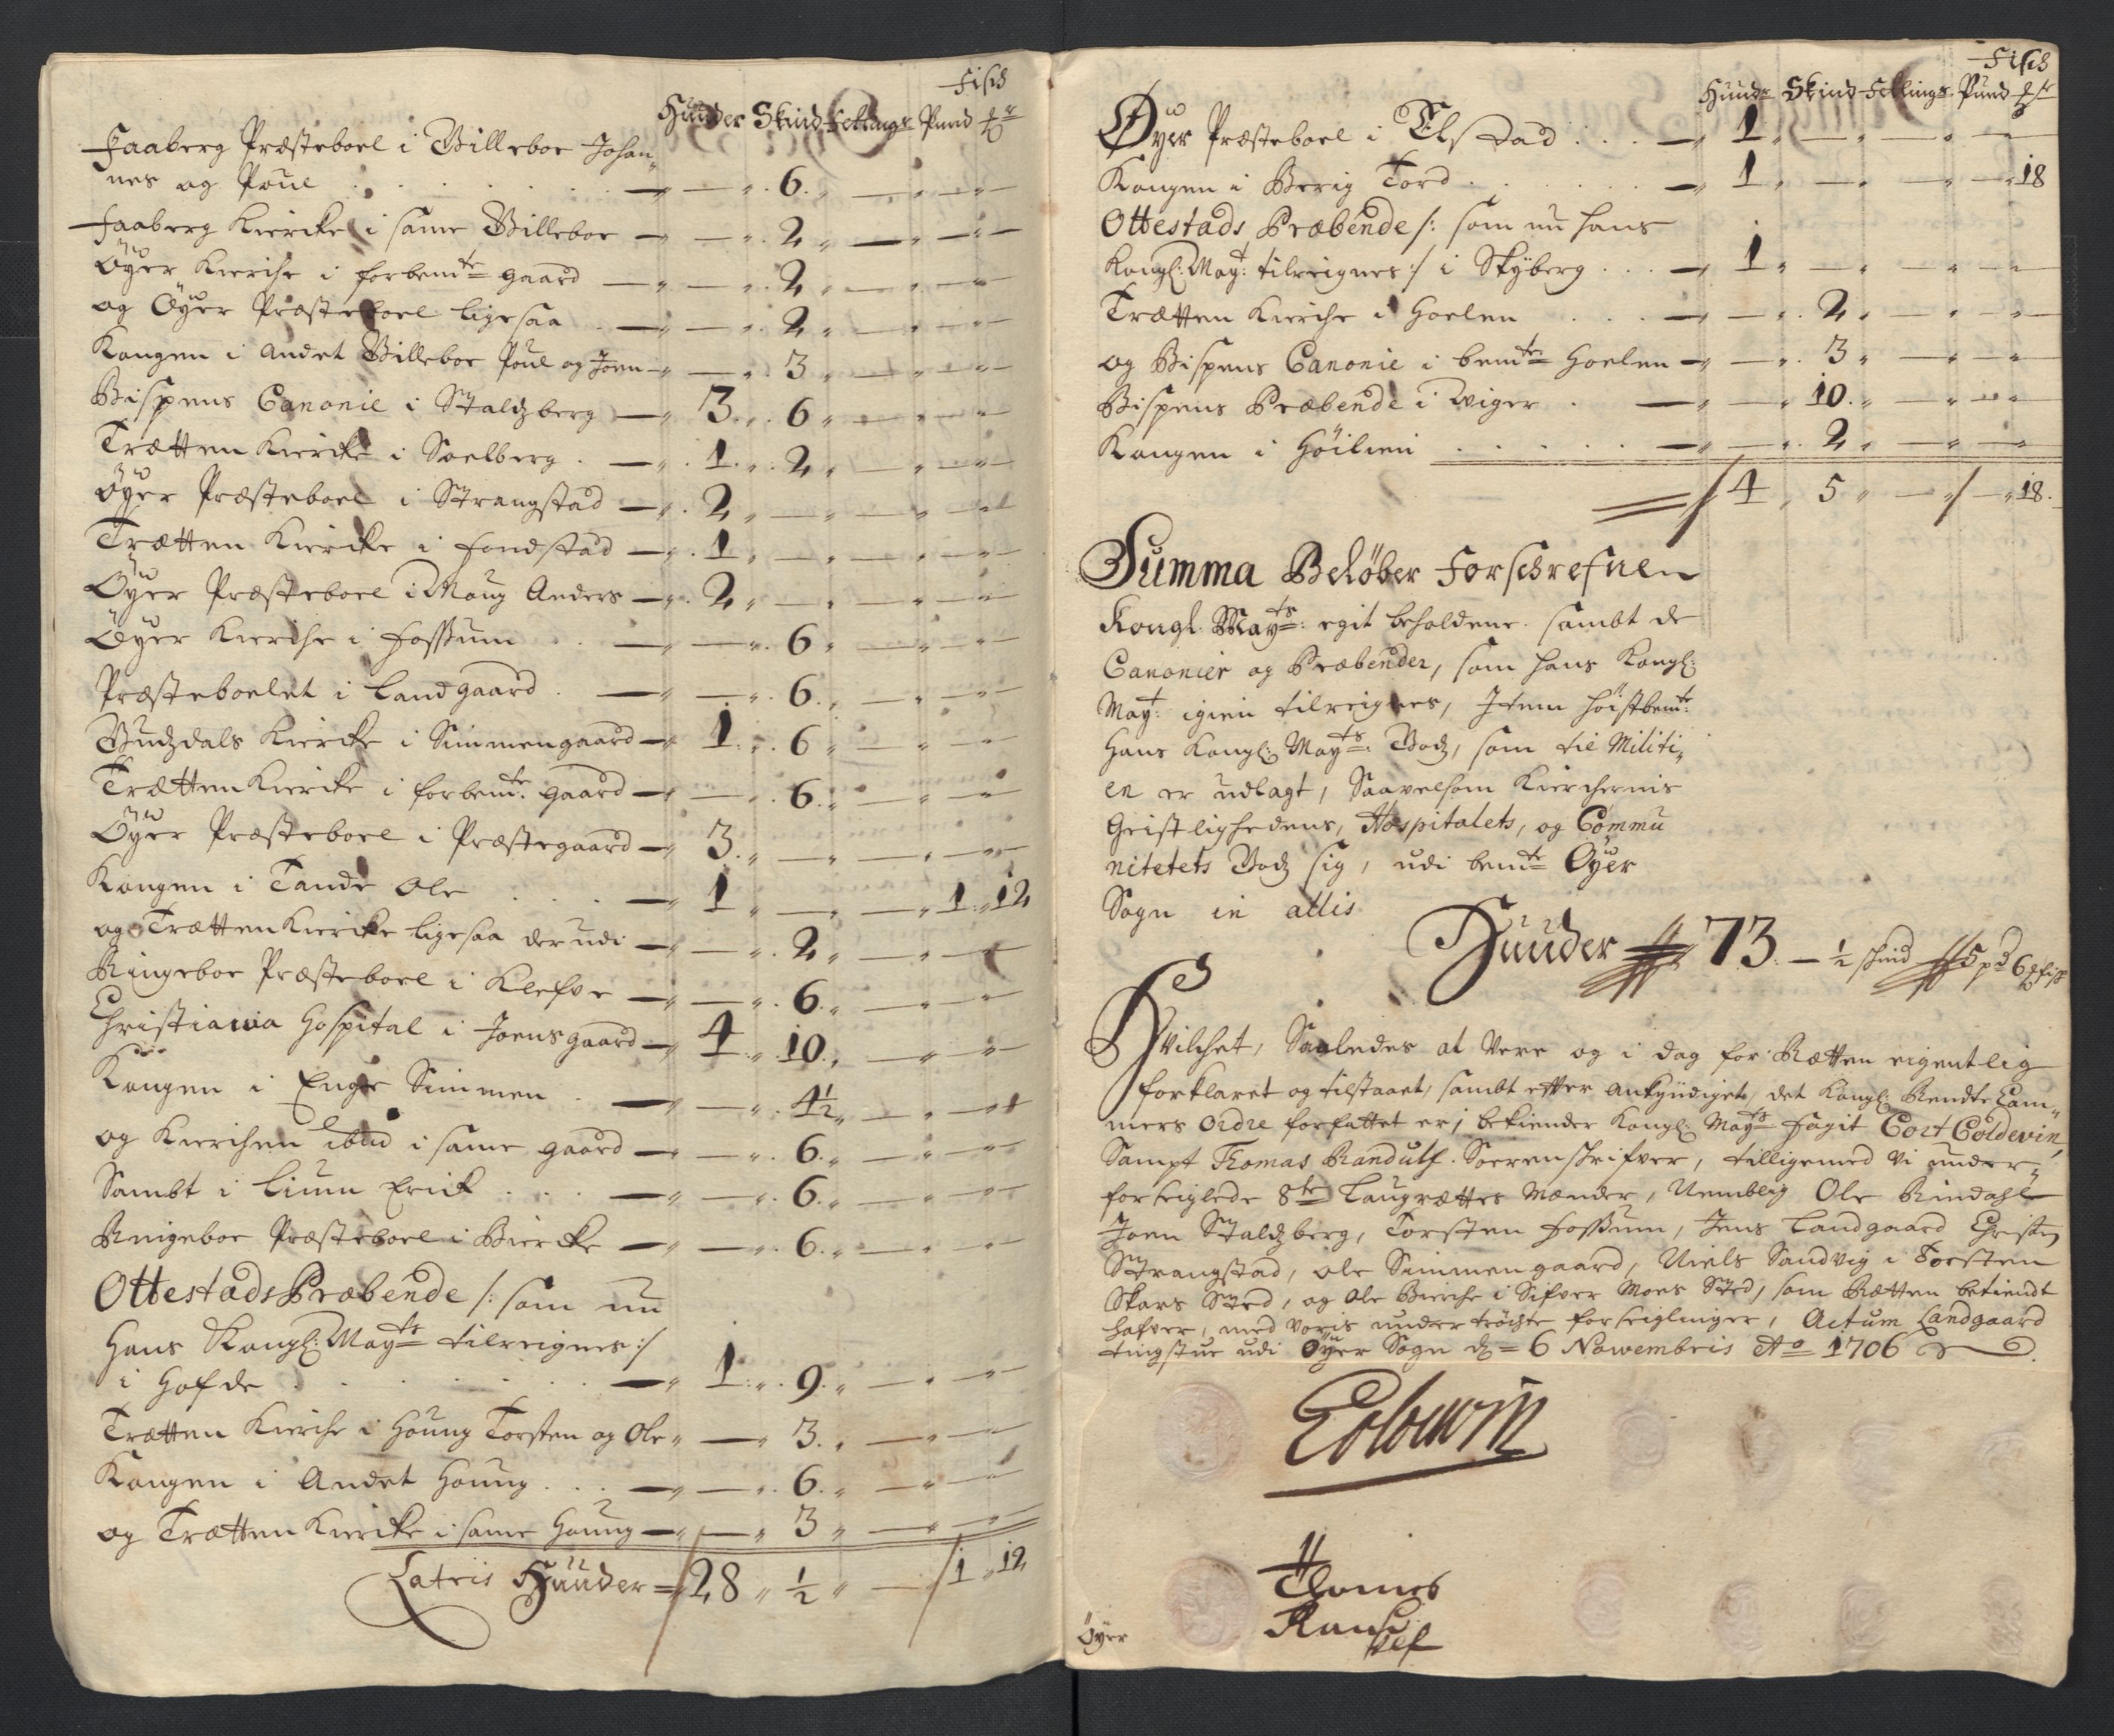 Fisch
Huuder Skind Fellings Pund
Faaberg Præsteboel i Billeboe Johan-
nes og Poul . . . — „ — „ 6 „ — „ — „ —
Faaberg Kiercke i same Billeboe — „ — „ 2 „ — „ — „ —
Öyer Kierche i forbemte gaard — „ — „ 2 „ — „ — „ —
og Öyer Præsteboel ligesaa . — „ — „ 2 „ — „ — „ —
Kongen i Andet Billeboe Poul og Joen — „ — „ 3 „ — „ — „ —
Bispens Canonie i Staldzberg — „ 3 „ 6 „ — „ — „ —
Trætten Kiercke i Soelberg . — „ 1 „ 2 „ — „ — „ —
Öyer Præsteboel i Strangstad — „ 2 „ — „ — „ — „ —
Trætten Kiercke i Fondstad — „ 1 „ — „ — „ — „ —
Öyer Præsteboel i Moug Anders — „ 2 „ — „ — „ — „ —
Öyer Kierche i Fossum . . — „ — „ 6 „ — „ — „ —
Præsteboelet i Landgaard . — „ — „ 6 „ — „ — „ —
Budzdals Kiercke i Simmengaard — „ 1 „ 6 „ — „ — „ —
Trætten Kiercke i forbemte gaard — „ — „ 6 „ — „ — „ —
Öyer Præsteboel i Præstegaard — „ 3 „ — „ — „ — „ —
Kongen i Tande Ole . . . — „ 1 „ — „ — „ 1 „ 12
og Trætten Kiercke ligesaa derudi — „ — „ 2 „ — „ — „ —
Ringeboe Præsteboel i Klefve — „ — „ 6 „ — „ — „ —
Christiania Hospital i Joensgaard — „ 4 „ 10 „ — „ — „ —
Kongen i Enge Simmen . — „ — „ 4½ „ — „ — „ —
og Kierchen ibid i same gaard — „ — „ 6 „ — „ — „ —
Sambt i Lium Erick . . . — „ — „ 6 „ — „ — „ —
Ringeboe Præsteboel i Biercke — „ — „ 6 „ — „ — „ —
Ottestads Præbende /: som nu
Hans Kongl: Mayts tilreignes :/
i Hofde . . . — „ 1 „ 9 „ — „ — „ —
Trætten Kierche i Houng Torsten og Ole „ — „ 3 „ — „ — „ —
Kongen i Andet Houng . . . — „ — „ 6 „ — „ — „ —
og Trætten Kiercke i same Houng — „ — „ 3 „ — „ — „ —
Latris Huuder = 28 „ ½ „ — / 1 „ 12
Fisch
Huudr Skind Fellings Pund
Öyer Præsteboel i Elstad . . . — „ 1 „ — „ — „ — „ —
Kongen i Berig Tord . . . — „ 1 „ — „ — „ — „ 18
Ottestads Præbende /: som nu hans
Kongl: Mayt: tilreignes :/ i Skyberg . . . — „ 1 „ — „ — „ — „ —
Trætten Kierche i Hoelen . . . — „ — „ 2 „ — „ — „ —
og Bispens Canonie i bemte Hoelen — „ — „ 3 „ — „ — „ —
Bispens Præbende i Wiger . — „ — „ 10 „ — „ — „ —
Kongen i Höilien . . . — „ — „ 2 „ — „ — „ —
4 „ 5 „ — / — „ 18
Summa Belöber Forschrefnen
Kongl: Mayts: egit beholdene sambt de
Canonier og Præbender, som hans Kongl:
Mayt: igien tilreignes, Item höistbemte:
Hans Kongl: Mayts: Bodz, som til Militi-
en er udlagt, Saavelsom Kierchernis
Geistlighedens, Hospitalets, og Commu
nitetets Bodz sig, udi bemte Öyer
Sogn in allis
Huuder 73 — ½ skind 5 pd 6 fisk
Hvilchet, Saaledes at Vere og i dag for Rætten eigentlig
forklaret og tilstaaet, sambt efter ankyndiget, det Kongl: Rendte Cam-
mers Ordre forfattet er, bekiender Kongl: Mayts Fogit Cort Coldevin,
Sampt Thomas Randulf Sorenskrifver, tilligemed vi under-
forseiglede 8te Laugrættes Mænder, Nemblig Ole Rindahl
Joen Staldzberg, Torsten Fossum, Jens Landgaard Christen
Strangstad, Ole Simmengaard, Niels Sandvig i Torsten
Skars Sted, og Ole Bierche i Sifver Moes Sted, som Rætten betiendt
hafver, med voris undertröchte forseiglinger, Actum Landgaard
tingstue udi Öyer Sogn d = 6 Novembris Ao 1706
Coldewin
Thomes
Randulf
Öyer